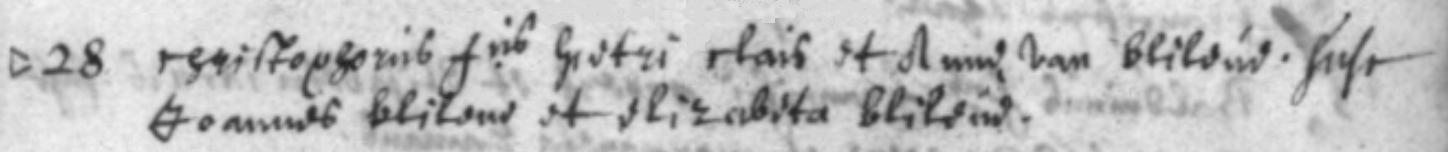 28 Christophorus f iis petri Clais et Annę Van blileud. susc
Joannes blileud et elizabeta blileud.